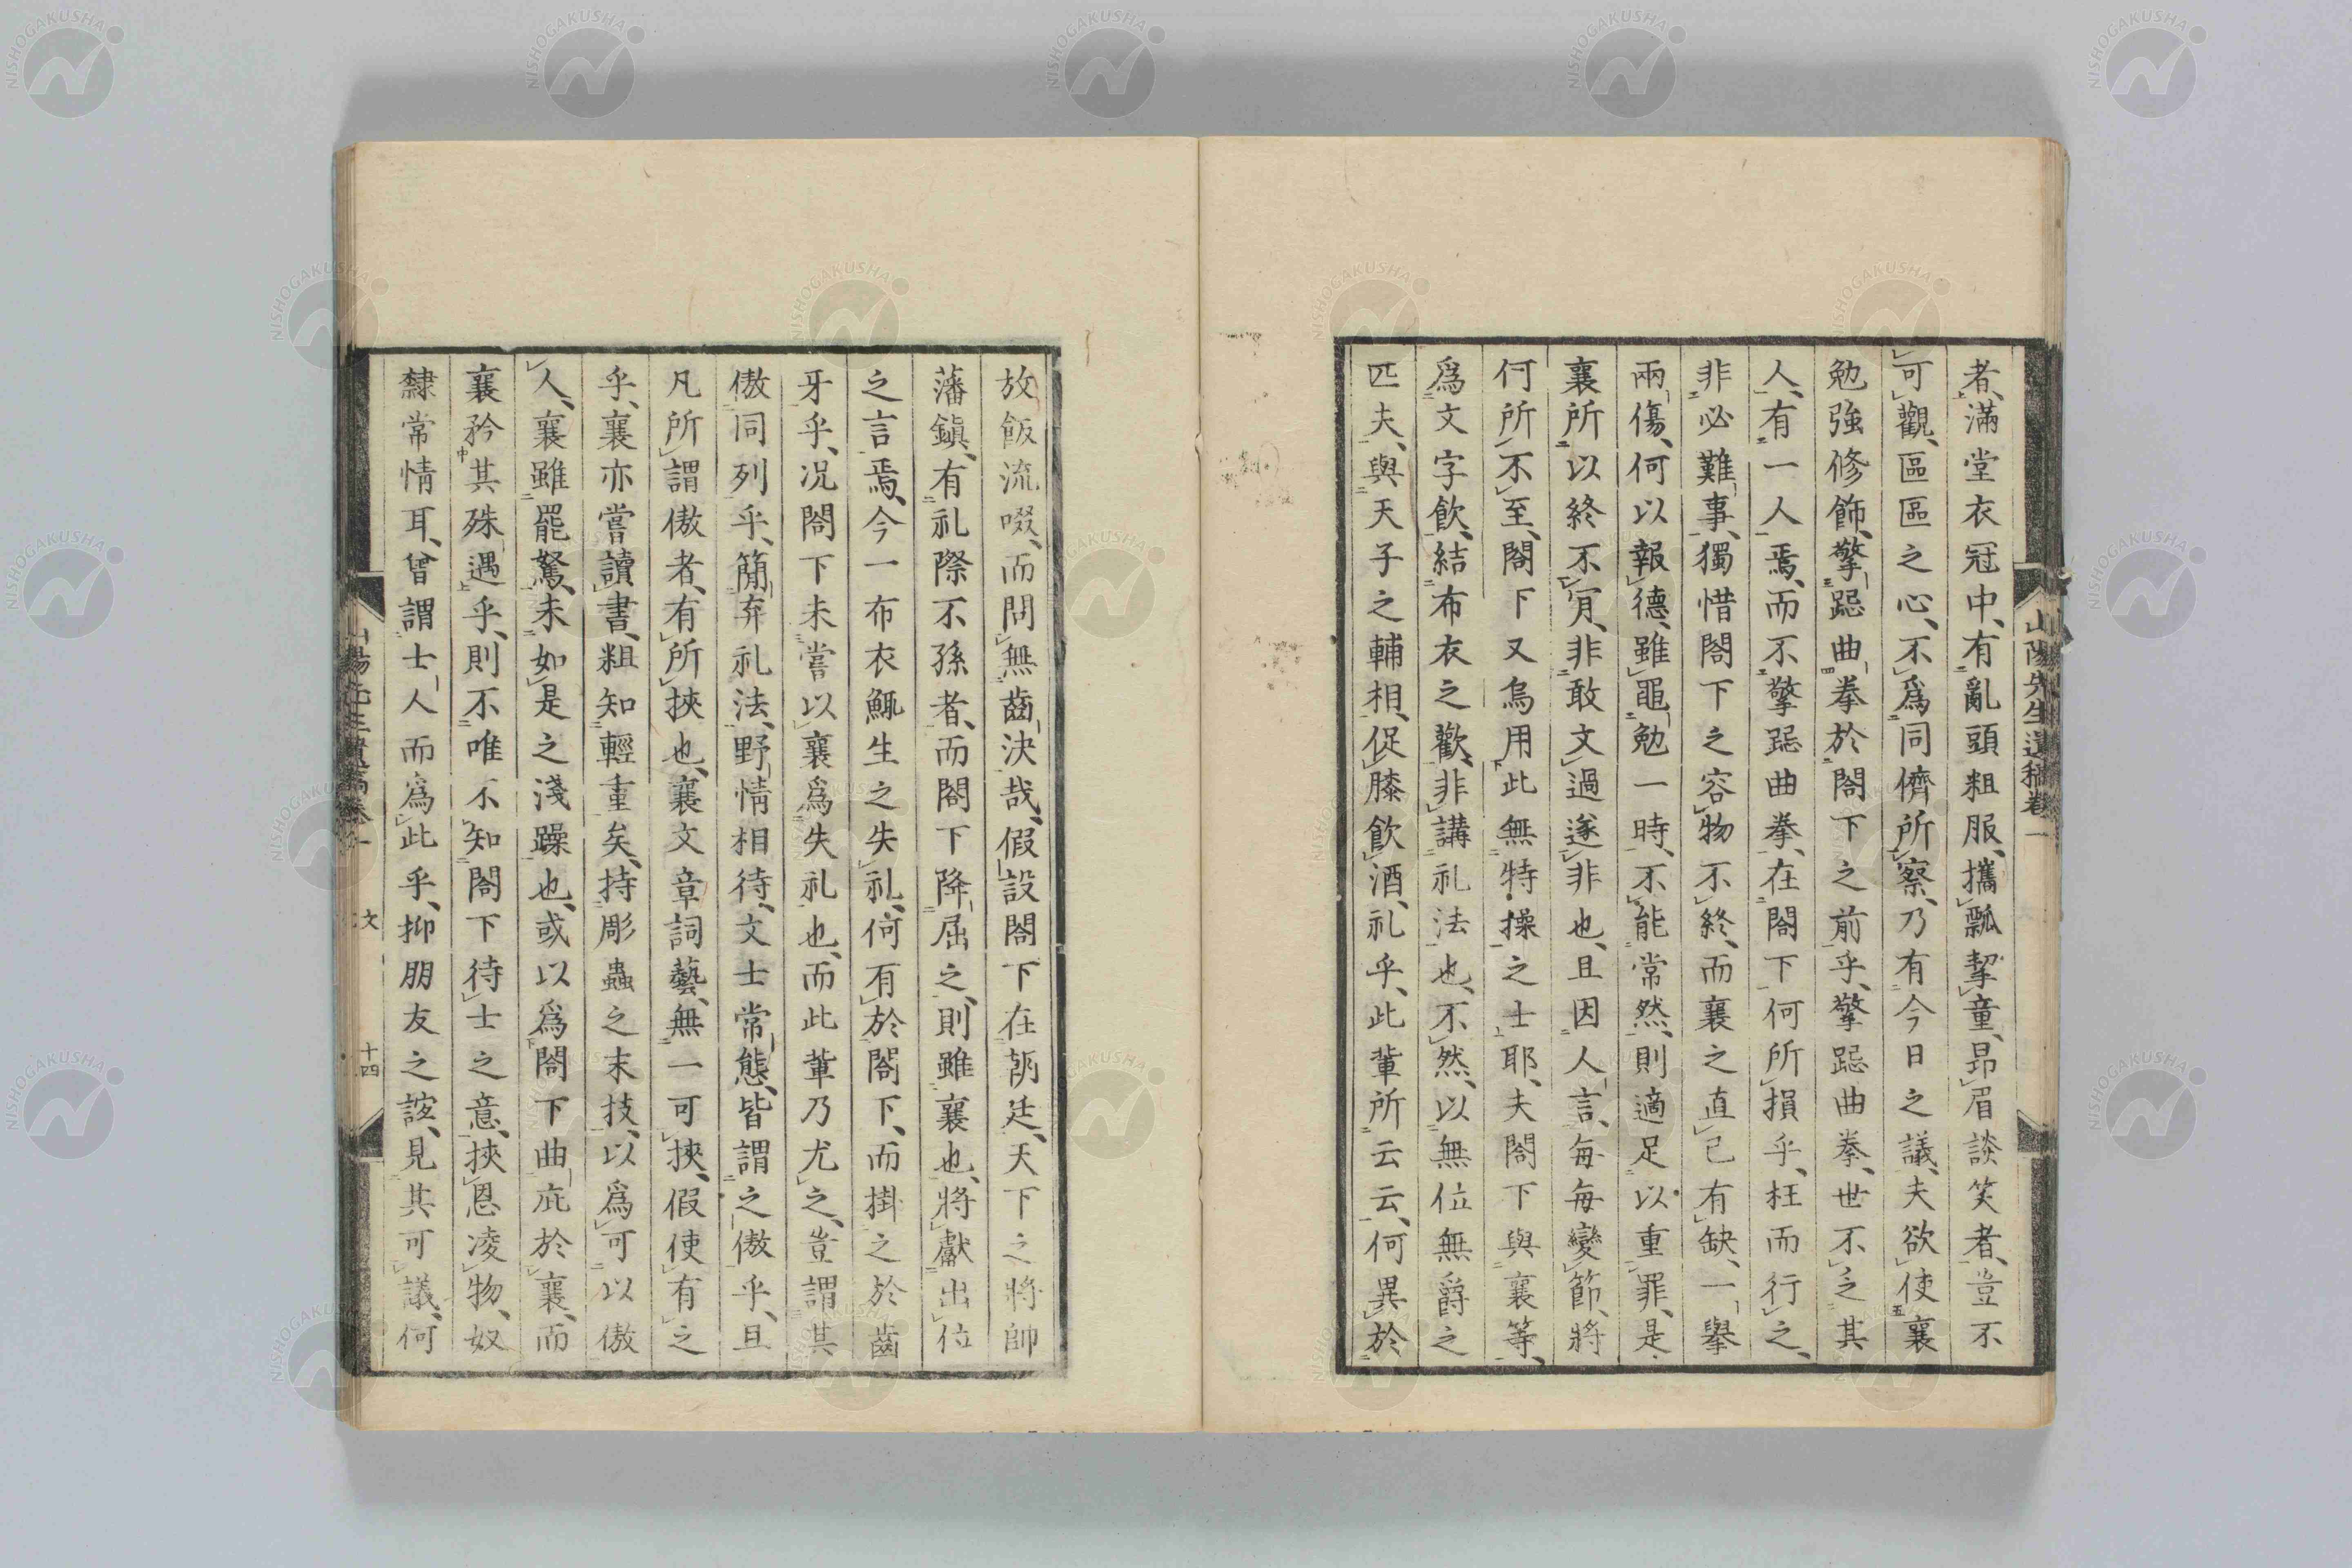 者、滿堂衣冠中、有亂頭粗服、攜瓢挈童、昂眉談笑者、豈不
可觀、區區之心、不爲同儕所察、乃有今日之議、夫欲使襄
勉強修飾、擎跽曲拳於閤下之前乎、擎跽曲拳、世不乏其
人、有一人焉、而不擎跽曲拳、在閤下何所損乎、枉而行之、
非必難事、獨惜閤下之容物不終、而襄之直己有缺、一擧
兩傷、何以報德、雖黽勉一時、不能常然、則適足以重罪、是
襄所以終不肎、非敢文過遂非也、且因人言、每每變節、將
何所不至、閤下又烏用此無特操之士耶、夫閤下與襄等、
爲文字飮、結布衣之歡、非講礼法也、不然、以無位無爵之
匹夫、與天子之輔相、促膝飮酒、礼乎、此輩所云云、何異於
放飯流啜、而問無齒決哉、假設閤下在朝廷、天下之將帥
藩鎭、有礼際不孫者、而閤下降屈之、則雖襄也、將獻出位
之言焉、今一布衣鯫生之失礼、何有於閤下、而掛之於齒
牙乎、况閤下未嘗以襄爲失礼也、而此輩乃尤之、豈謂其
傲同列乎、簡弃礼法、野情相待、文士常態、皆謂之傲乎、且
凡所謂傲者、有所挾也、襄文章詞藝、無一可挾、假使有之
乎、襄亦嘗讀書、粗知輕重矣、持彫蟲之末技、以爲可以傲
人、襄雖罷駑、未如是之淺躁也、或以爲閤下曲庇於襄、而
襄矜其殊遇乎、則不唯不知閤下待士之意、挾恩凌物、奴
隸常情耳、曾謂士人而爲此乎、抑朋友之誼、見其可議、何
山陽先生遺稿卷一
山陽先生遺稿卷一
文
十四
NISHOGAKUSHA